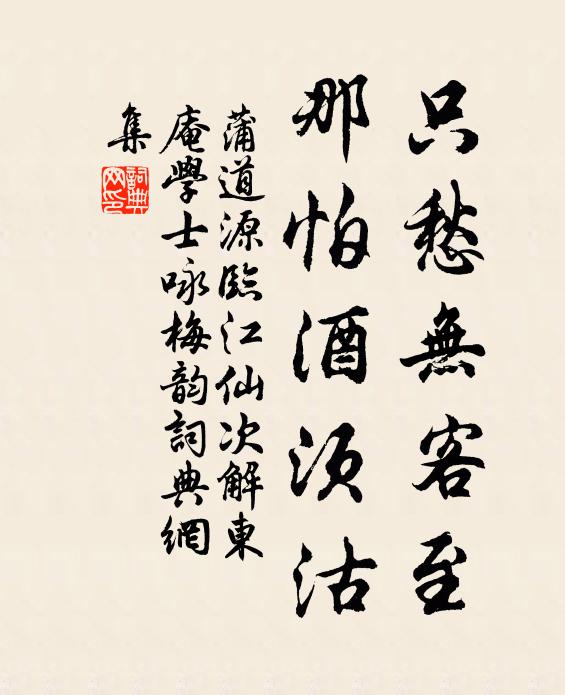 只愁無客至
那怕酒須沽
蒲道源臨江仙次解東
庵學士咏梅韵詞典網
集
詞典網印